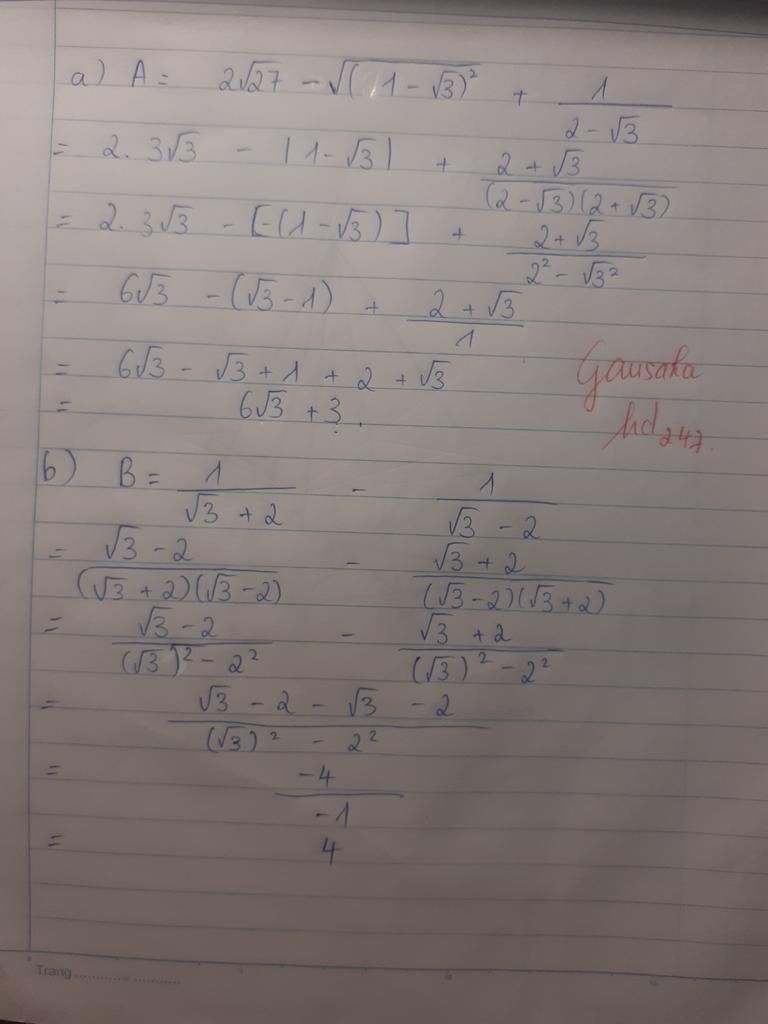 a) A = 2√27 - √(1-√3)² + 1/(2-√3)
= 2. 3√3 - |1-√3| + (2+√3)/((2-√3)(2+√3))
= 2. 3√3 - [-(1-√3)] + (2+√3)/(2² - √3²)
= 6√3 - (√3-1) + (2+√3)/1
= 6√3 - √3 + 1 + 2 + √3
= 6√3 + 3.
Gausaka
hd247.
b) B = 1/(√3 + 2) - 1/(√3 - 2)
= (√3 - 2)/((√3 + 2)(√3 - 2)) - (√3 + 2)/((√3 - 2)(√3 + 2))
= (√3 - 2)/((√3)² - 2²) - (√3 + 2)/((√3)² - 2²)
= (√3 - 2 - √3 - 2)/((√3)² - 2²)
= -4/-1
= 4
Trang